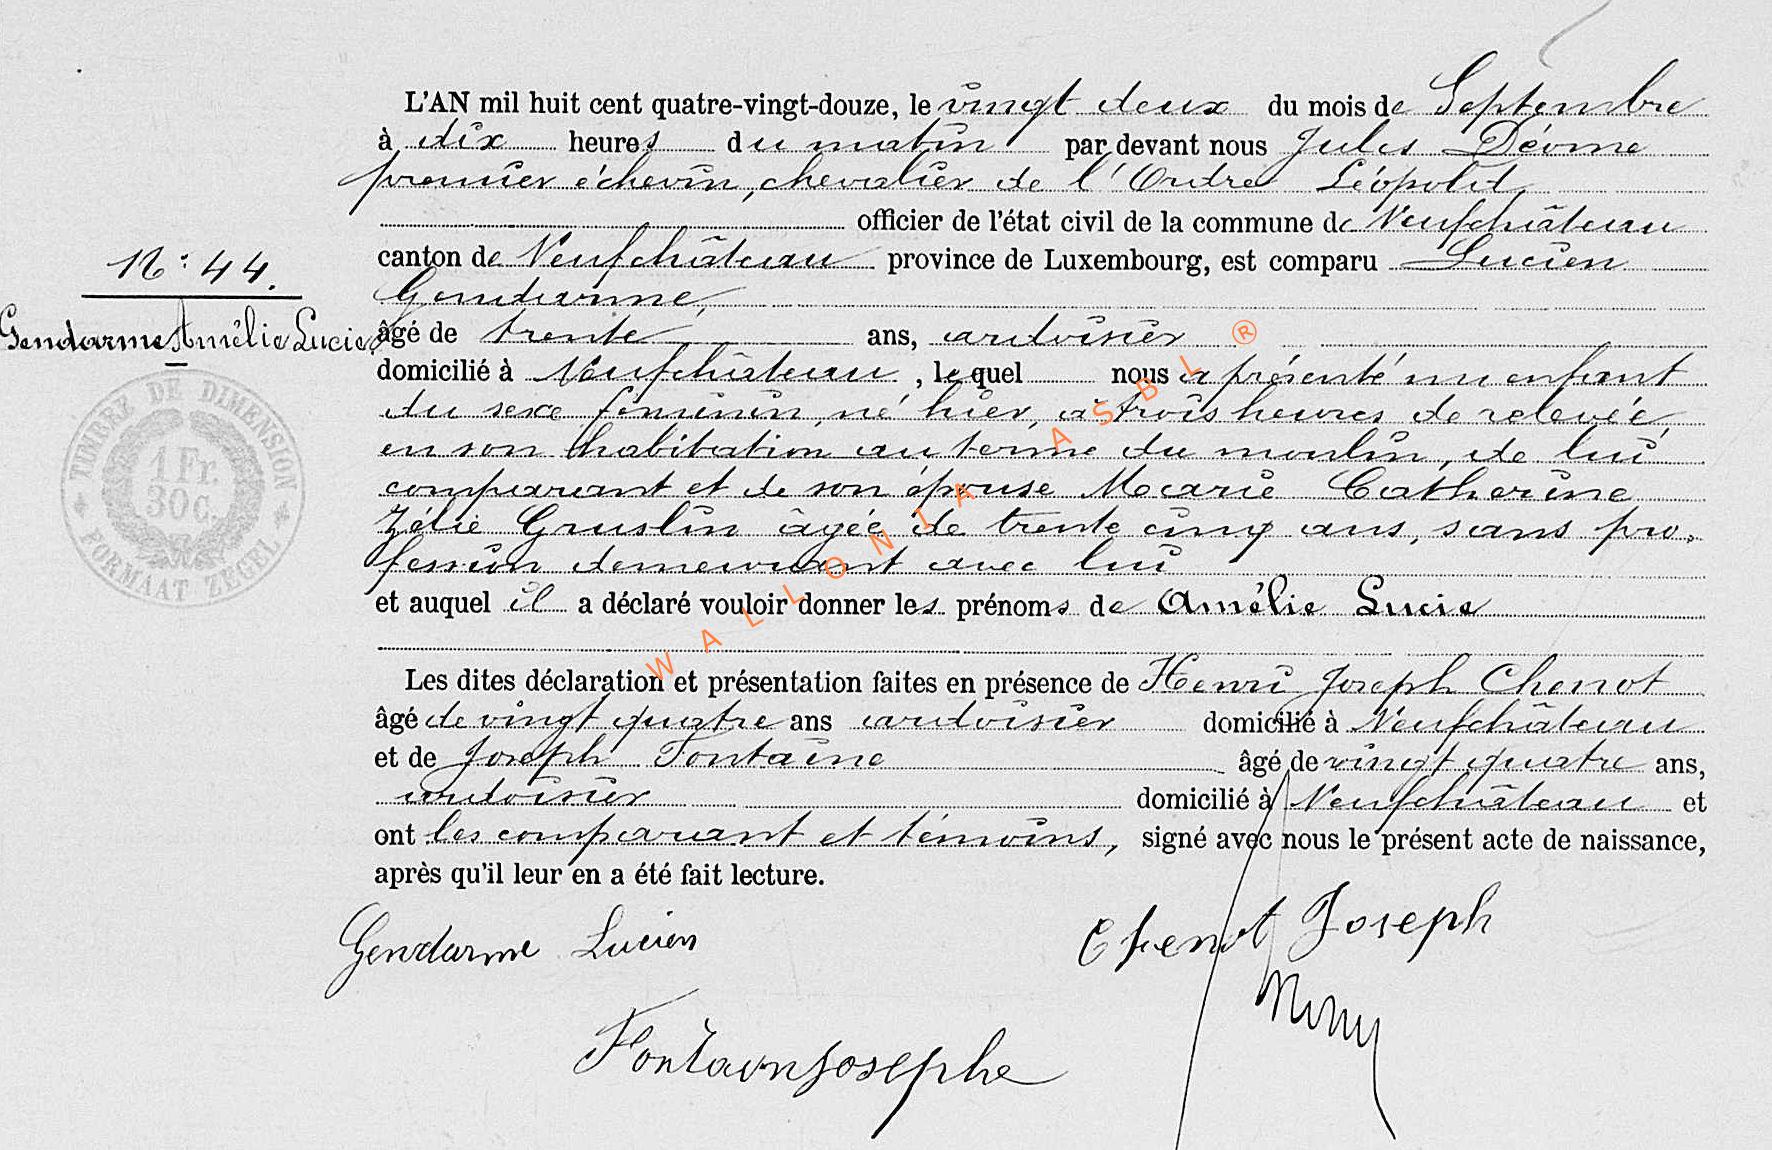 L'AN mil huit cent quatre-vingt-douze, le vingt deux du mois de Septembre
à dix heures du matin par devant nous Jules Déome
premier échevin, chevalier de l'Ordre Léopold,
officier de l'état civil de la commune de Neufchâteau
N°: 44.
canton de Neufchâteau province de Luxembourg, est comparu Lucien
Gendarme,
Gendarme Amélie Lucie
âgé de trente ans, ardoisier
domicilié à Neufchâteau, lequel nous a présenté un enfant
du sexe féminin, né hier, à trois heures de relevée,
en son habitation au terme du moulin, de lui
comparant et de son épouse Marie Catherine
Zélie Gruslin âgée de trente cinq ans, sans pro-
fession demeurant avec lui
et auquel il a déclaré vouloir donner les prénoms de Amélie Lucie
TIMBRE DE DIMENSION
1 Fr.
30 C.
FORMAAT ZEGEL
WALLONIA ASBL ®
Les dites déclaration et présentation faites en présence de Henri Joseph Chenot
âgé de vingt quatre ans ardoisier domicilié à Neufchâteau
et de Joseph Fontaine âgé de vingt quatre ans,
ardoisier domicilié à Neufchâteau et
ont les comparant et témoins, signé avec nous le présent acte de naissance,
après qu'il leur en a été fait lecture.
Gendarme Lucien
Chenot Joseph
Fontain Josephe